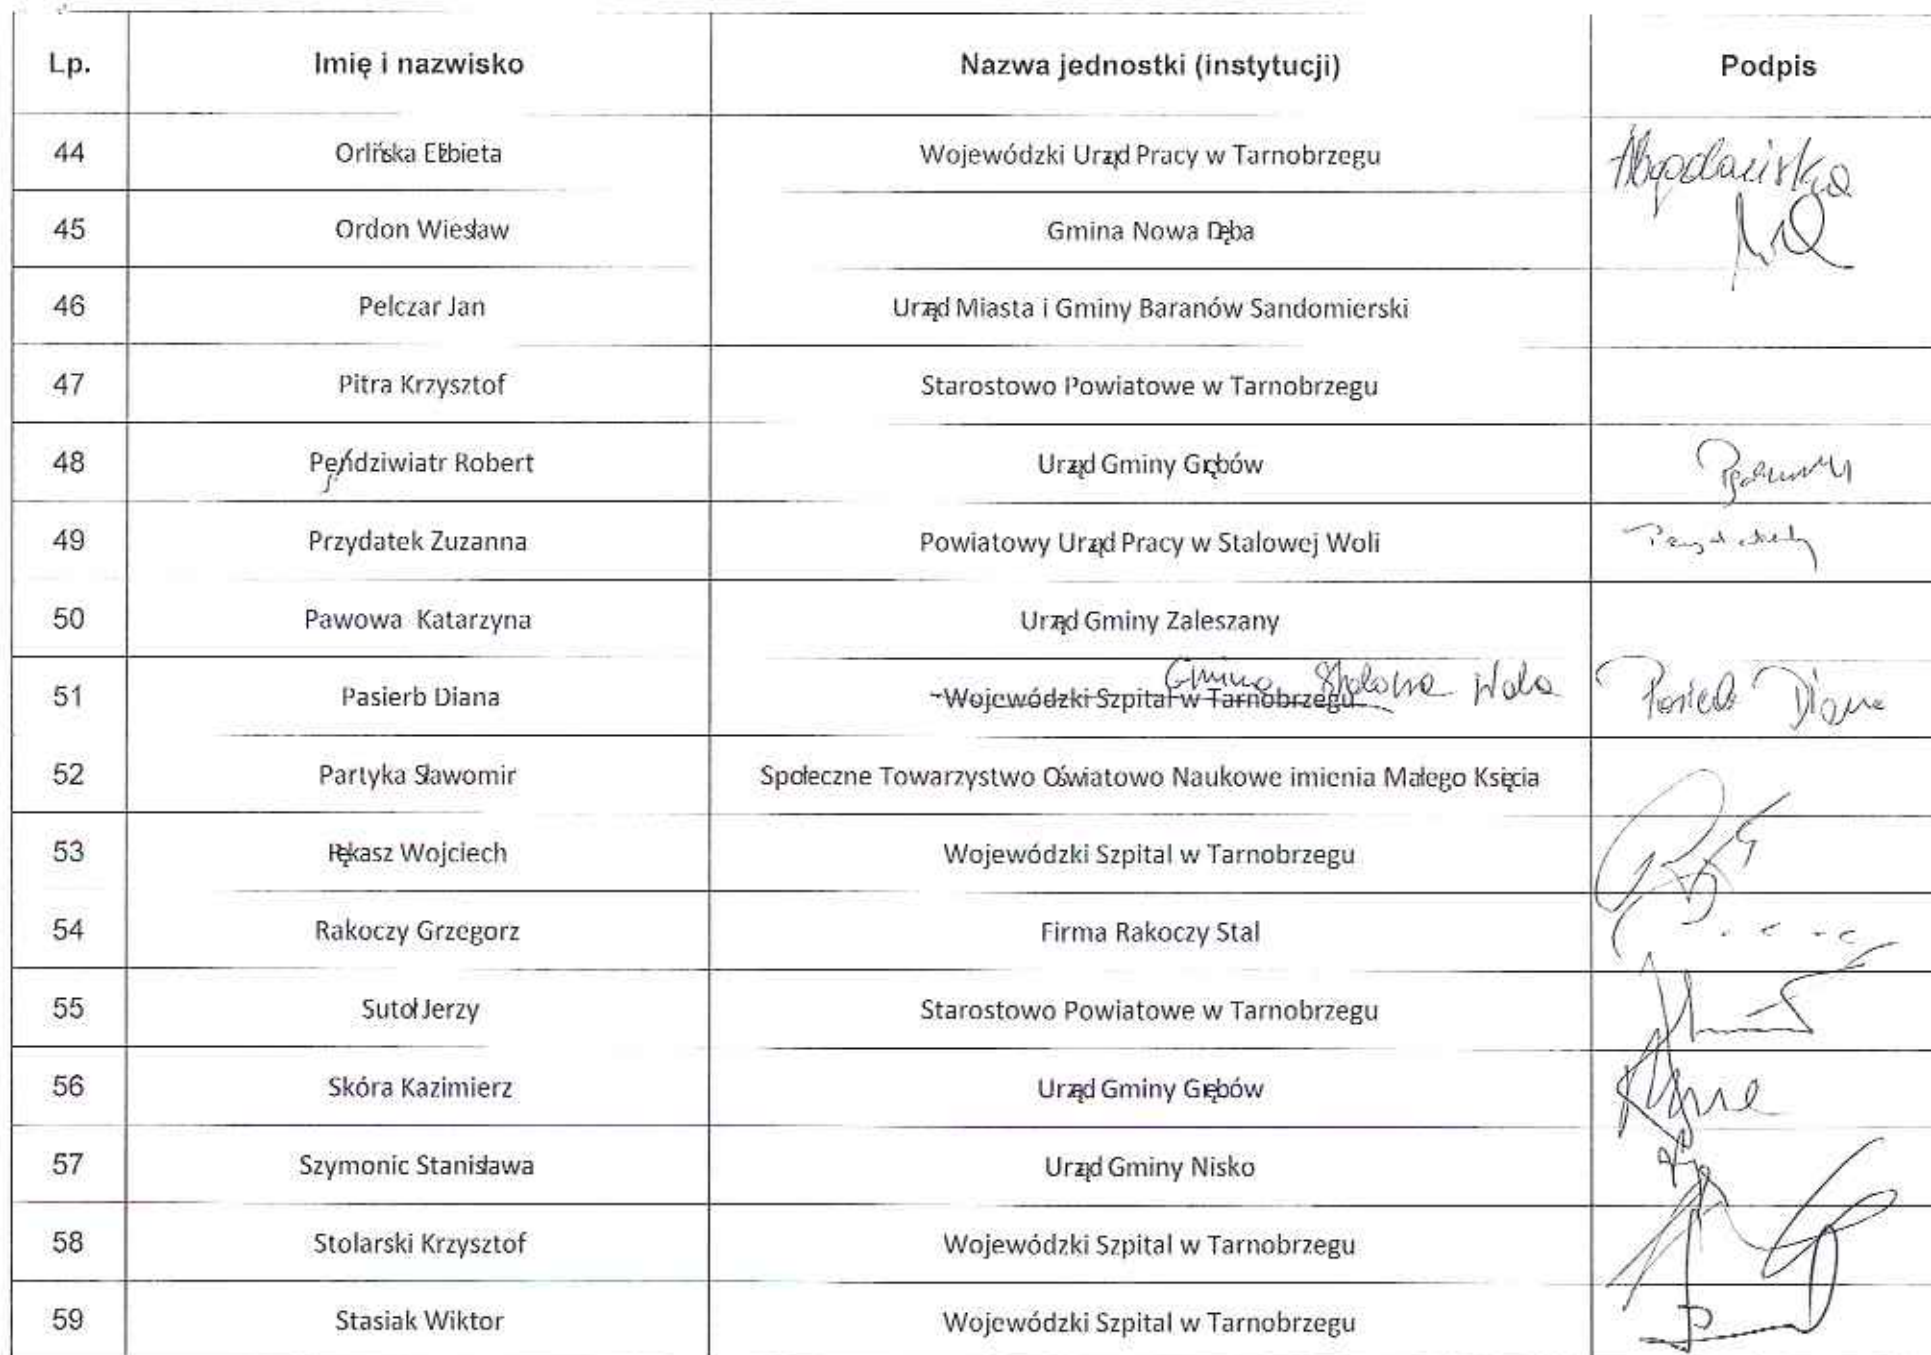 Lp. Imię i nazwisko Nazwa jednostki (instytucji) Podpis
44 Orlińska Elżbieta Wojewódzki Urząd Pracy w Tarnobrzegu
45 Ordon Wiesław Gmina Nowa Dęba
46 Pelczar Jan Urząd Miasta i Gminy Baranów Sandomierski
47 Pitra Krzysztof Starostowo Powiatowe w Tarnobrzegu
48 Pendziwiatr Robert Urząd Gminy Grębów
49 Przydatek Zuzanna Powiatowy Urząd Pracy w Stalowej Woli
50 Pawowa Katarzyna Urząd Gminy Zaleszany
Gmina Stalowa Wola
51 Pasierb Diana Wojewódzki Szpital w Tarnobrzegu Pasierb Diana
52 Partyka Sławomir Społeczne Towarzystwo Oświatowo Naukowe imienia Małego Księcia
53 Rękasz Wojciech Wojewódzki Szpital w Tarnobrzegu
54 Rakoczy Grzegorz Firma Rakoczy Stal
55 Sutoł Jerzy Starostowo Powiatowe w Tarnobrzegu
56 Skóra Kazimierz Urząd Gminy Grębów
57 Szymonic Stanisława Urząd Gminy Nisko
58 Stolarski Krzysztof Wojewódzki Szpital w Tarnobrzegu
59 Stasiak Wiktor Wojewódzki Szpital w Tarnobrzegu